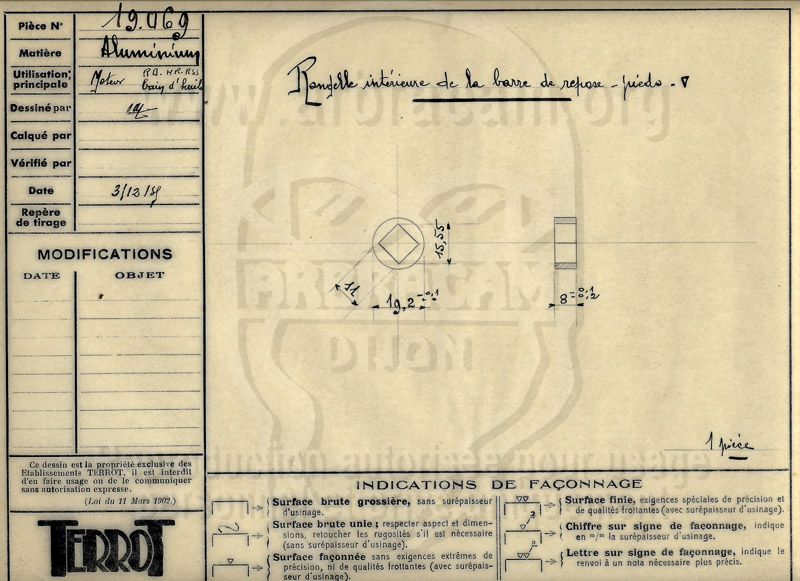 Pièce N° 19.069
Matière Aluminium
Utilisation principale Moteur P.B. HR.RSS bain d'huile
Dessiné par
Calqué par
Vérifié par
Date
Repère de tirage
MODIFICATIONS
DATE OBJET
Ce dessin est la propriété exclusive des
Etablissements TERROT, il est interdit
d'en faire usage ou de le communiquer
sans autorisation expresse.
(Loi du 11 Mars 1902.)
TERROT
Rondelle intérieure de la barre de repose-pieds
15,55
11
19,2 -0,1
8 -0,1 -0,2
1 pièce
INDICATIONS DE FAÇONNAGE
Surface brute grossière, sans surépaisseur
d'usinage.
Surface brute unie ; respecter aspect et dimen-
sions, retoucher les rugosités s'il est nécessaire
(sans surépaisseur d'usinage).
Surface façonnée sans exigences extrêmes de
précision, ni de qualités frottantes (avec surépais-
seur d'usinage).
Surface finie, exigences spéciales de précision et
de qualités frottantes (avec surépaisseur d'usinage).
Chiffre sur signe de façonnage, indique
en =/= la surépaisseur d'usinage.
Lettre sur signe de façonnage, indique le
renvoi à un nota nécessaire plus précis.
www.arbracam.org
ARBRACAM
DIJON